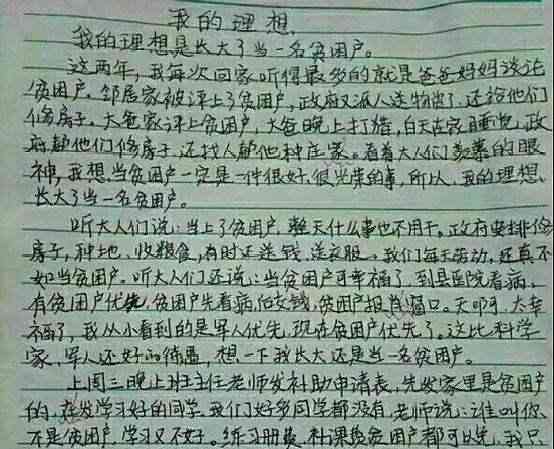 我的理想
我的理想是长大了当一名贫困户。
这两年，我每次回家听得最多的就是爸爸妈妈谈论
贫困户，邻居家被评上了贫困户，政府又派人送物资了，还给他们
修房子。大爸家评上贫困户，大爸晚上打猎，白天在家睡觉，政
府帮他们修房子，还找人帮他种庄家。看着大人们羡慕的眼
神，我想，当贫困户一定是一件很好，很光荣的事，所以，我的理想
长大了当一名贫困户。
听大人们说：当上了贫困户，整天什么事也不用干。政府安排修
房子，种地、收粮食，有时还送钱、送衣服。我们每天劳动，还真不
如当贫困户。听大人们还说：当贫困户可幸福了，到县医院看病，
有贫困户优先，贫困户先看病，后交钱，贫困户报肖窗口。天啊，太幸
福了，我从小看到的是军人优先，现在贫困户优先了。这比科学
家，军人还好的待遇，想一下我长大还是当一名贫困户。
上周三晚上班主任老师发补助申请表，先发家里是贫困户
的，在发学习好的同学，我们好多同学都没有，老师说：谁叫你
不是贫困户，学习又不好。练习册费，补课费贫困户都可以免，我只